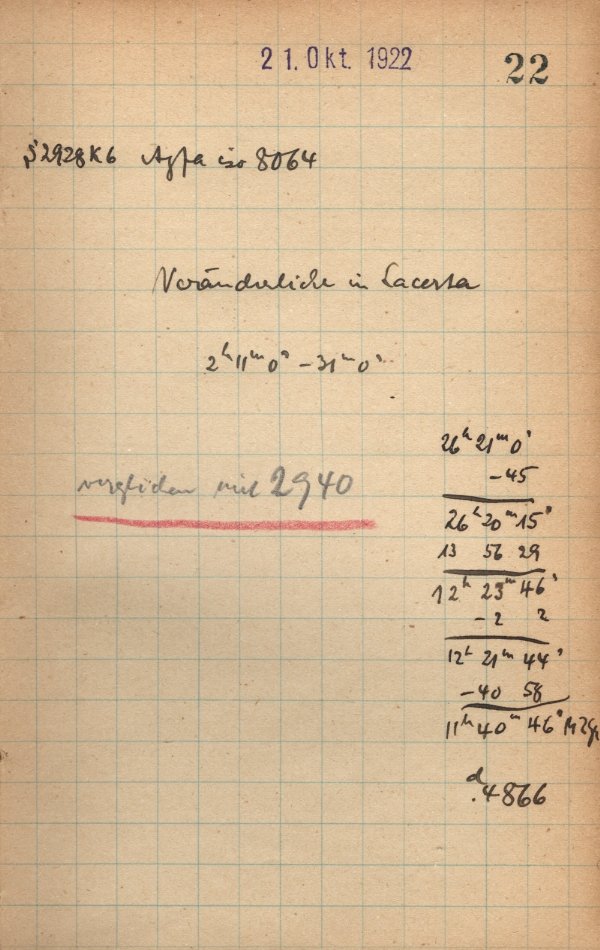 21. Okt. 1922
22
S2928K6 Agfa iso 8064
Veränderliche in Lacerta
2ʰ11ᵐ0ˢ – 31ᵐ0ˢ
verglichen mit 2940
26ʰ 21ᵐ 0ˢ
-45
26ʰ 20ᵐ 15ˢ
13 56 29
12ʰ 23ᵐ 46ˢ
-2 2
12ʰ 21ᵐ 44ˢ
-40 58
11ʰ 40ᵐ 46ˢ MZGr
ᵈ.4866